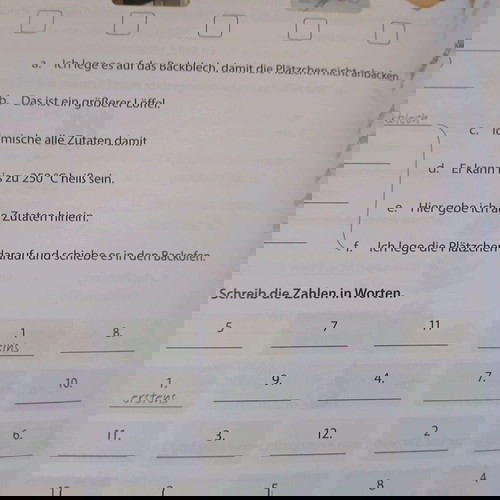 a. Ich lege es auf das Backblech, damit die Plätzchen nicht anbacken.
b. Das ist ein größerer Löffel.
blech
c. mische alle Zutaten damit
d. Er kann zu 250°C heiß sein.
e. Hier gebe ich Zutaten hinein.
f. Ich lege die Plätzchen darauf und schiebe es in den Backofen.
Schreib die Zahlen in Worten.
1 8. 5 7 11
eins
10. 1. 9. 4. 7.
erstens
6. 11. 3. 12. 2
8 4